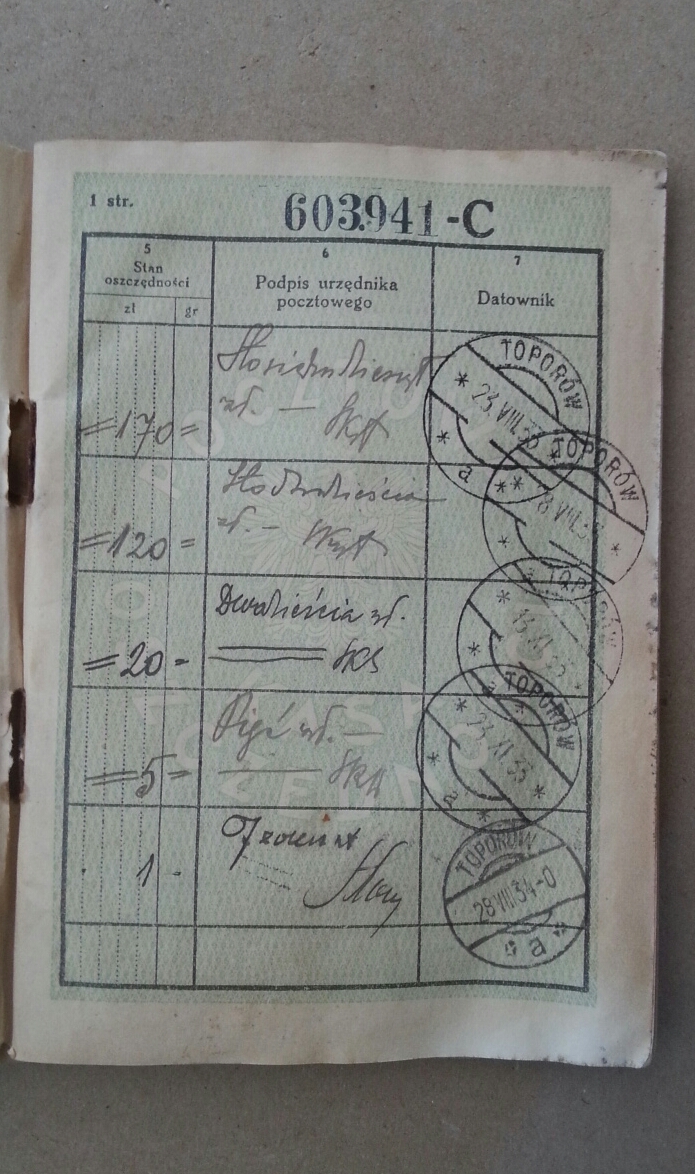 1 str.
603.941-C
5
Stan
oszczędności
zł gr
6
Podpis urzędnika
pocztowego
7
Datownik
Stosiedmdziesiąt
zł. —
=170=
TOPORÓW
23.VIII.35
a
Stodwadzieścia
zł. —
=120=
TOPORÓW
Dwadzieścia zł.
=20-
TOPORÓW
Pięć zł. —
=5=
TOPORÓW
23.XI.35
a
1 -
TOPORÓW
28 VIII 34-0
a